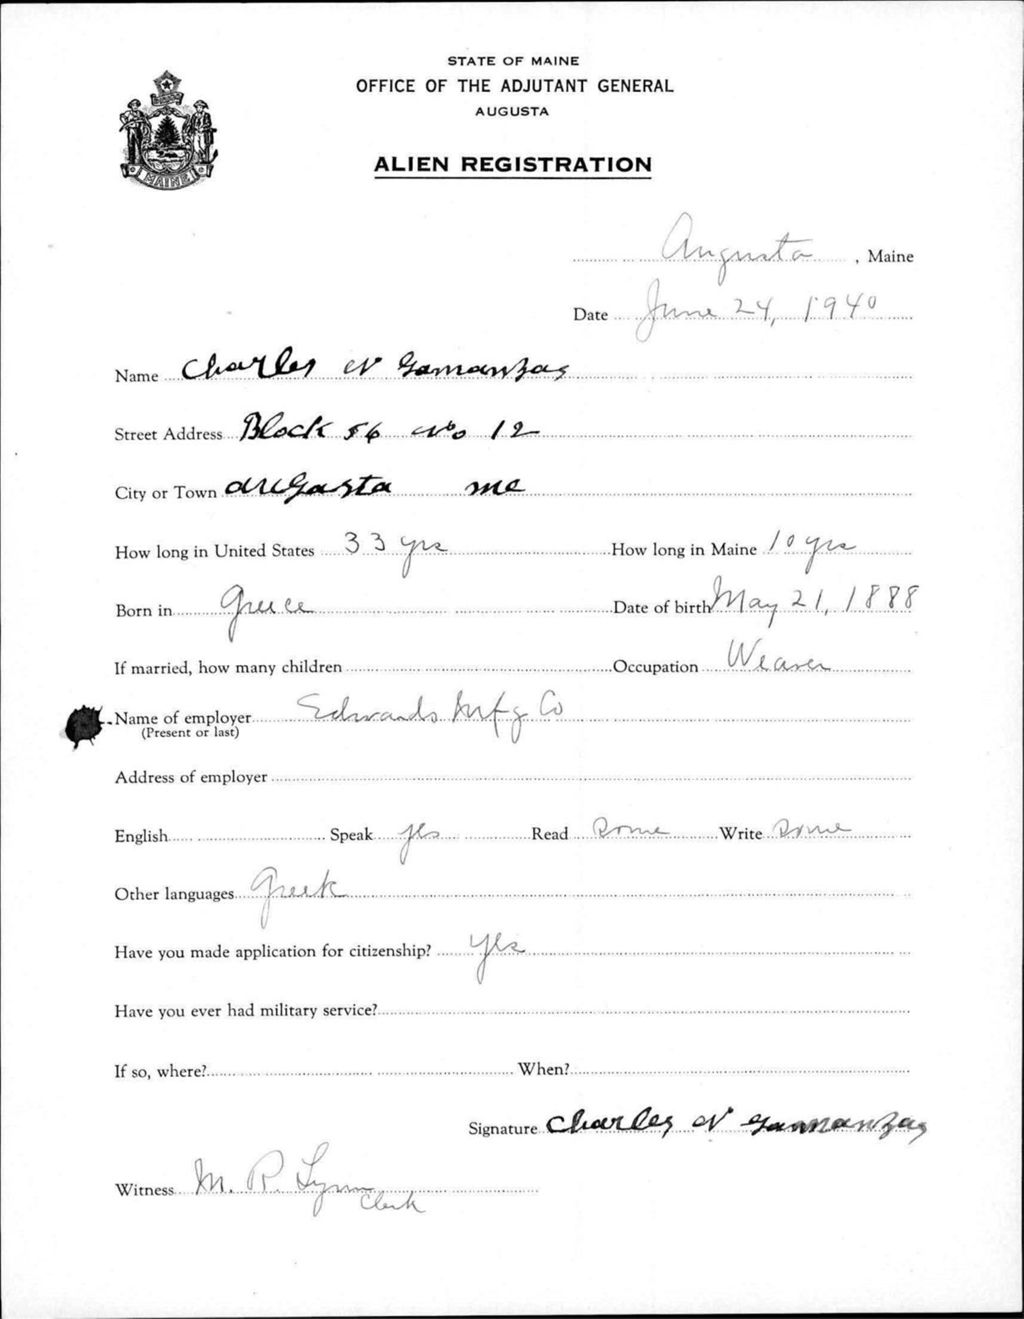 STATE OF MAINE
OFFICE OF THE ADJUTANT GENERAL
AUGUSTA
ALIEN REGISTRATION
MAINE
Augusta, Maine
Date June 24, 1940
Name Charles N
Street Address Block 56 No 12
City or Town auGasta me
How long in United States 33 yrs How long in Maine 10 yrs
Born in Greece Date of birth May 21, 1888
If married, how many children Occupation Weaver
Name of employer Edwards Mfg Co
(Present or last)
Address of employer
English Speak yes Read Some Write Some
Other languages Greek
Have you made application for citizenship? yes
Have you ever had military service?
If so, where? When?
Signature Charles N
Witness M. R. Lynn
Clerk